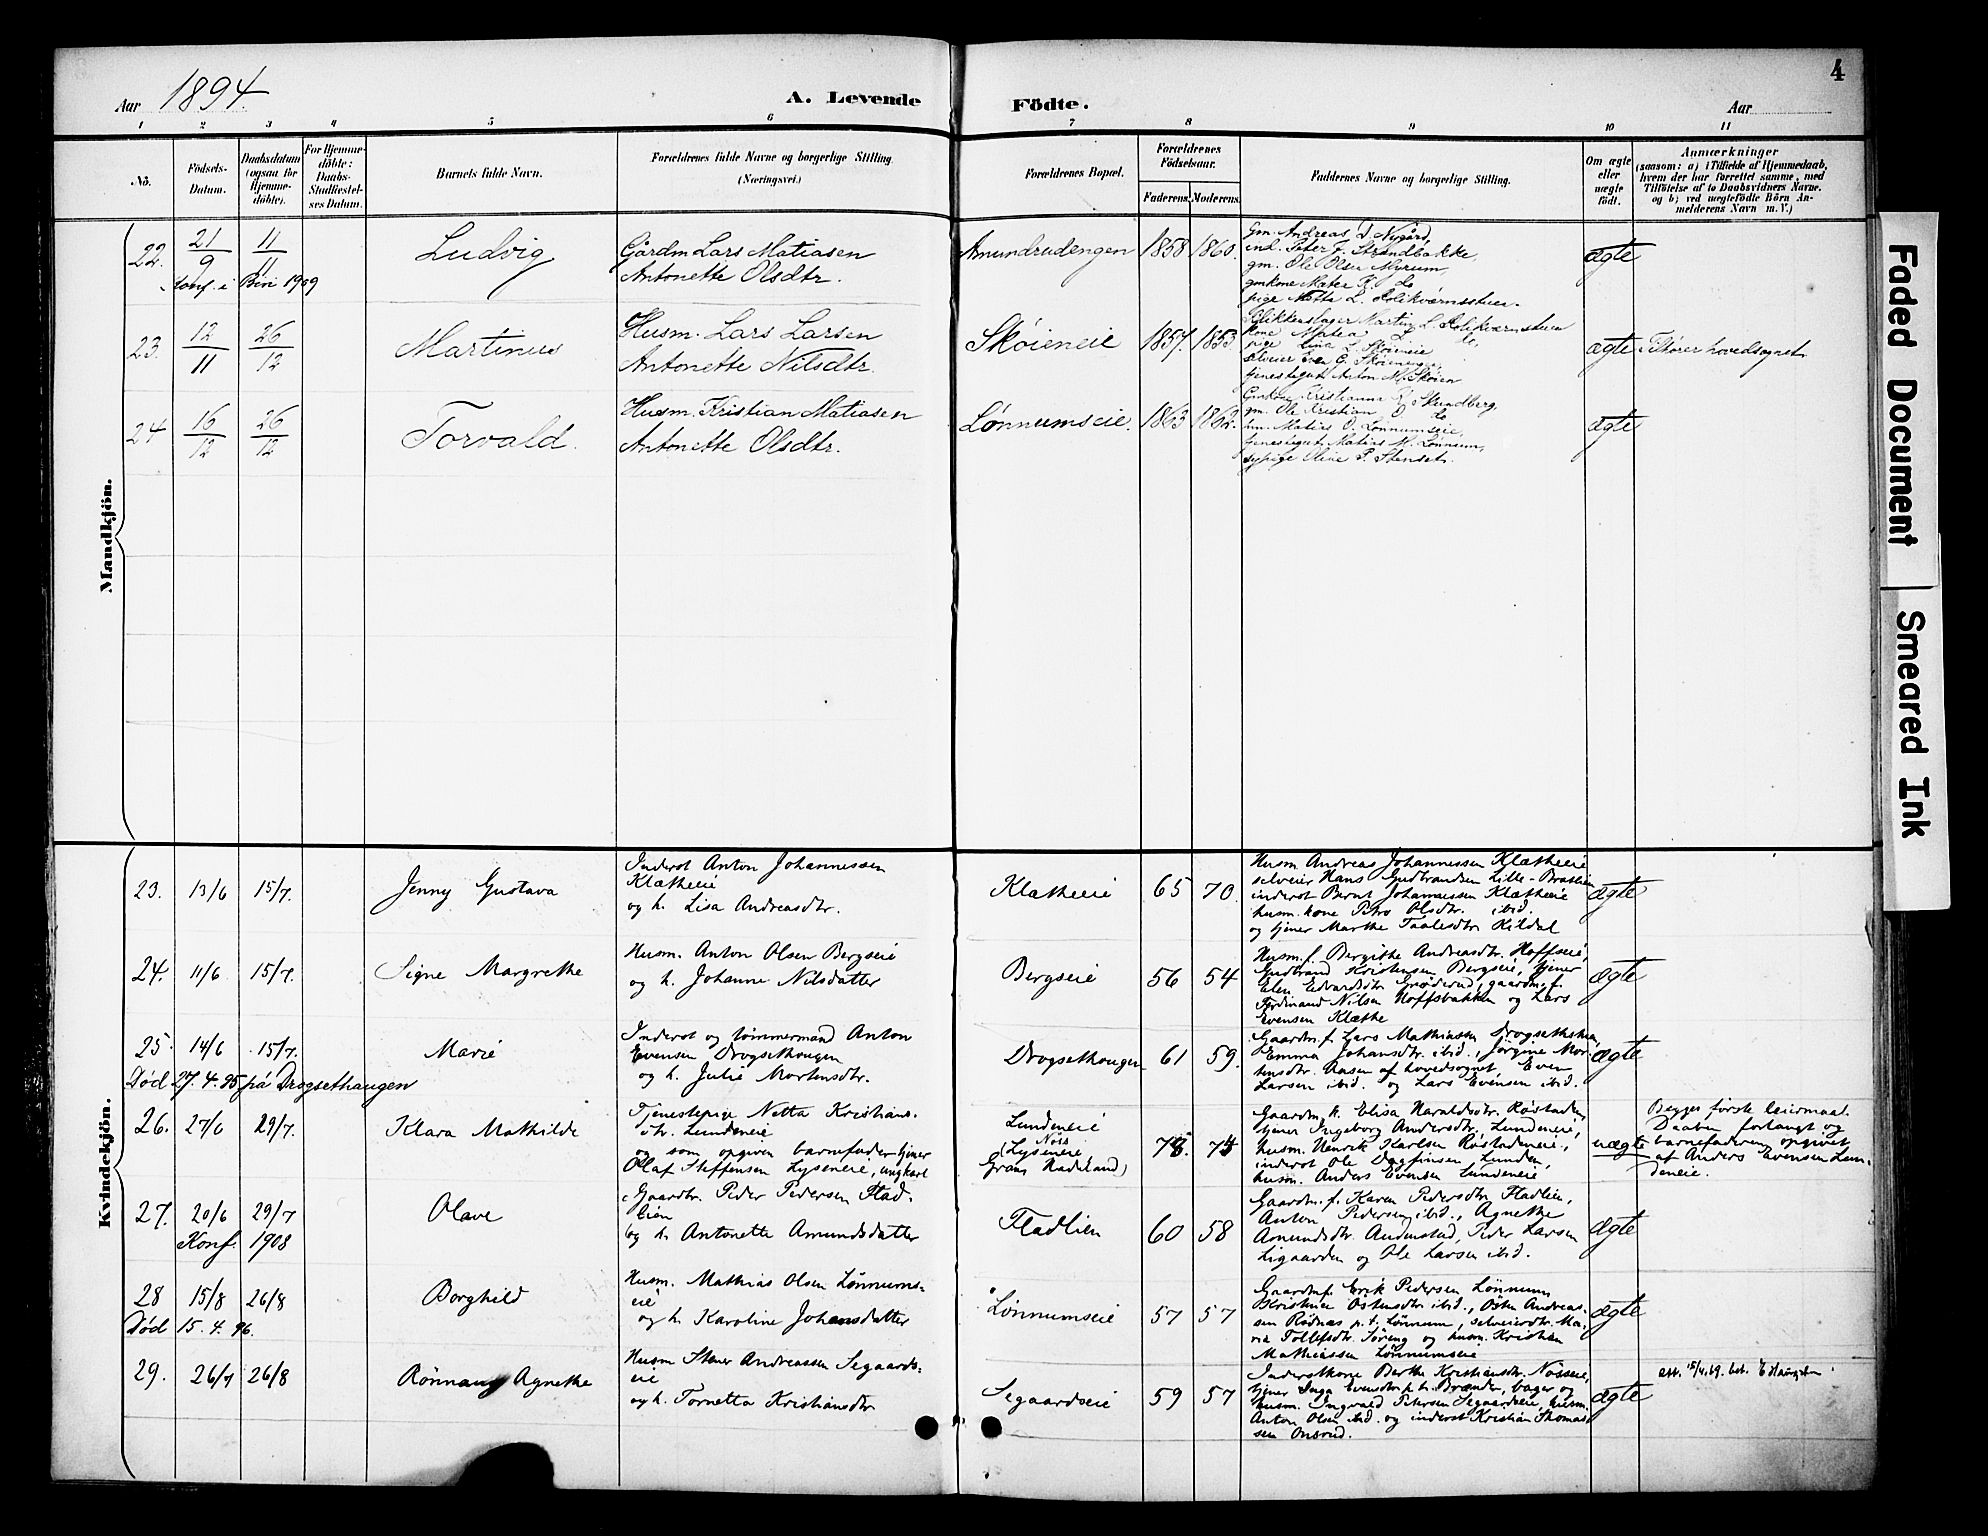 4
Aar 1894.
A. Levende
Födte.
Aar
1 2 3 4 5 6 7 8 9 10 11
No.
Födsels-Datum.
Daabsdatum (ogsaa for Hjemmedöbte).
For Hjemmedöbte: Daabs-Stadfæstelses Datum.
Barnets fulde Navn.
Forældrenes fulde Navne og borgerlige Stilling.
(Næringsvei.)
Forældrenes Bopæl.
Forældrenes Födselsaar.
Faderens. Moderens.
Faddernes Navne og borgerlige Stilling.
Om ægte eller uægte födt.
Anmærkninger
(saasom: a) i Tilfælde af Hjemmedaab,
hvem der har forrettet samme, med
Tilföielse af to Daabsvidners Navne.
og b) ved uægtefödte Börn Anmelderens Navn m. V.)
Mandkjön.
22. 21/9 11/11 Ludvig
Konf. i Biri 1909
Gårdm Lars Matiasen
Antonette Olsdtr.
Amundrudengen 1858 1860.
Gm. Andreas D. Nygård,
ind. Peter J. Strandbakke
gm. Ole Olsen Myrum
gmkone Mater R. do
pige Mette L. Kolikværnsstuen.
ægte
23. 12/11 26/12 Martinus
Husm. Lars Larsen
Antonette Nilsdtr.
Skøieneie 1857. 1853
Blikkenslager Martin L. Kolikværnstuen
kone Matea L. do,
pige Lina L. Skøieneie
selveier Even G. Skøieneie
tjenestegut Anton M. Skøien
ægte Tilhører hovedsognet
24 16/12 26/12 Torvald.
Husm. Kristian Matiasen
Antonette Olsdtr.
Lønnumseie. 1863 1862.
Gmkone Kristianne R. Skundberg.
gm. Ole Kristian O. do
hm. Matias O. Lønnumseie,
tjenestegut Matias M. Lønnum,
sypige Oline P. Stenset.
ægte
Kvindekjön.
23. 13/6 15/7. Jenny Gustava
Inderst Anton Johannessen
Klætheeie
og h. Lisa Andreasdtr.
Klætheeie 65 70.
Husm Andreas Johannessen Klætheeie
selveier Hans Gudbrandsen Lille-Bratlien
inderst Bernt Johannessen Klætheeie
husm. kone Petro Olsdtr. ibid.
og tjener Marthe Taalesdtr Kildal
ægte
24. 11/6 15/7. Signe Margrethe
Husm. Anton Olsen Bergseie
og h. Johanne Nilsdatter
Bergseie 56 54
Husm. f. Bergithe Andreasdtr. Hoffseie,
Gudbrand Kristensen Bergseie, tjener
Elen Edvardsdtr Grøderud, gaardm. f.
Ferdinand Nilsen Hoffsbakken og Lars
Evensen Klæthe
ægte
25. 14/6 15/7. Marie
Død 27. 4. 95 på Drogsethaugen
Inderst og tømmermand Anton
Evensen Drogsethougen
og h. Julie Mortensdtr.
Drogsethougen 61 59.
Gaardm. f. Lars Mathiassen Drogsethougen,
Emma Johansdtr. ibid., Jørgine Mortensdtr. Aasen af hovedsognet, Even
Larsen ibid. og Lars Evensen ibid.
ægte
26. 27/6 29/7. Klara Mathilde
Tjenestepige Netta Kristiansdtr. Lundeneie
og som opgiven barnefader tjener
Olaf Steffensen Lyseneie, ungkarl
Lundeneie
(Nøis
Lyseneie
Grans Hadeland)
74
Gaardm. k. Elisa Haraldsdtr. Røstaden,
tjener Ingeborg Andersdtr. Lundeneie,
husm. Henrik Karlsen Røstadeneie,
inderst Ole Dagfinsen Lunden,
husm. Anders Evensen Lundeneie
uægte
Begges første leiermaal.
Daaben forlangt og
barnefaderen opgivet
af Anders Evensen Lundeneie.
27. 20/6 29/7 Olave
Konf. 1908
Gaardbr. Peder Pedersen Fladlien
og h. Antonette Amundsdatter
Fladlien 60 58
Gaardm. f. Karen Pedersdtr. Fladlien,
Anton Pedersen, ibid., Agnethe
Amundsdtr. Audenstad, Peder Larsen
Ligaarden og Ole Larsen ibid.
ægte
28 15/8 26/8 Borghild
Død 15. 4. 96.
Husm. Mathias Olsen Lønnumseie
og h. Karoline Johansdatter
Lönnumseie 57 57
Gaardm. f. Erik Pedersen Lönnum
Kristine Østensdtr ibid., Østen Andreassen Rødnæs p.t. Lønnum, selveierdtr. Maria Tollefsdtr. Søreng og husm. Kristian
Mathiassen Lönnumseie
ægte
29. 26/7 26/8 Rönnaug Agnethe
Husm Stener Andreassen Segaardseie
og h. Tornetta Kristiansdtr
Segaardseie 59 57
Inderstkone Berthe Kristiansdtr. Nøsseie,
tjener Inga Evensdtr. p.t. Brænden, bager og
husm. Ingvald Petersen Segaardseie, husm.
Anton Olsen ibid. og inderst Kristian Thomassen Onsrud.
ægte
att. 15/4.69.
Faded Document
Smeared Ink